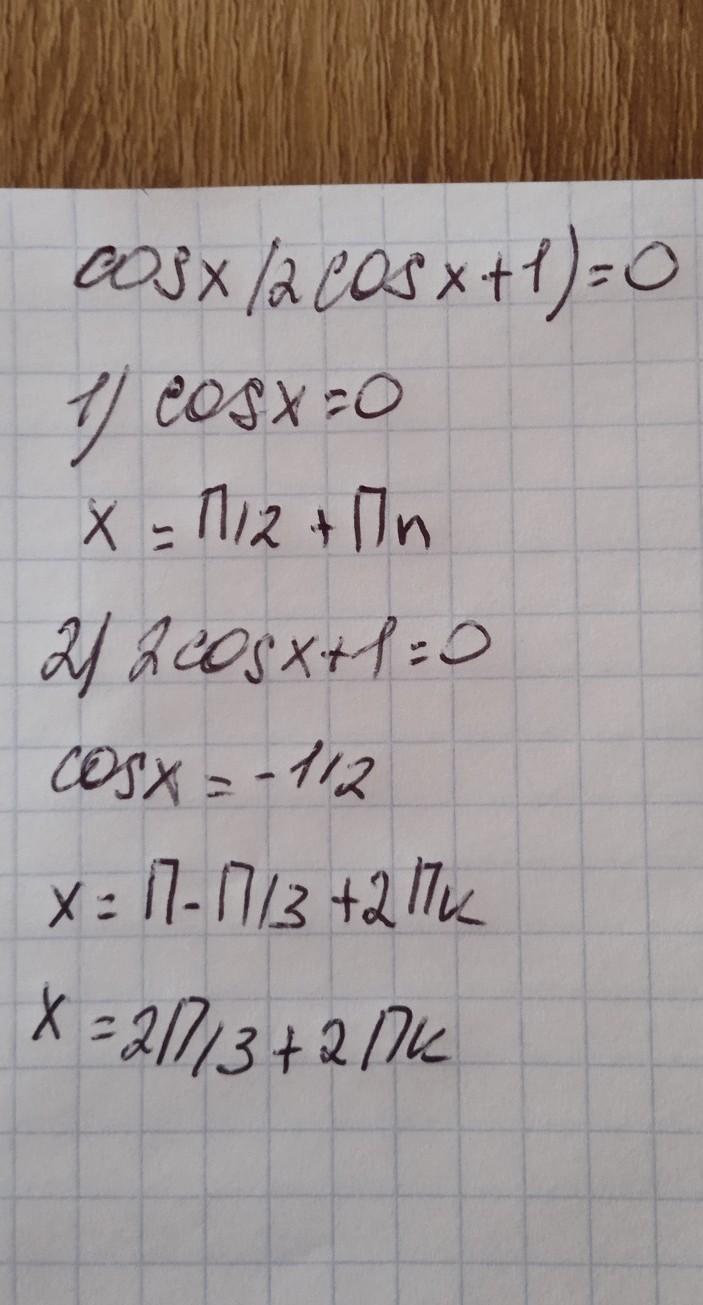 cosx(2cosx+1)=0
1) cosx=0
x=П/2+Пn
2) 2cosx+1=0
cosx=-1/2
x=П-П/3+2Пк
x=2П/3+2Пк